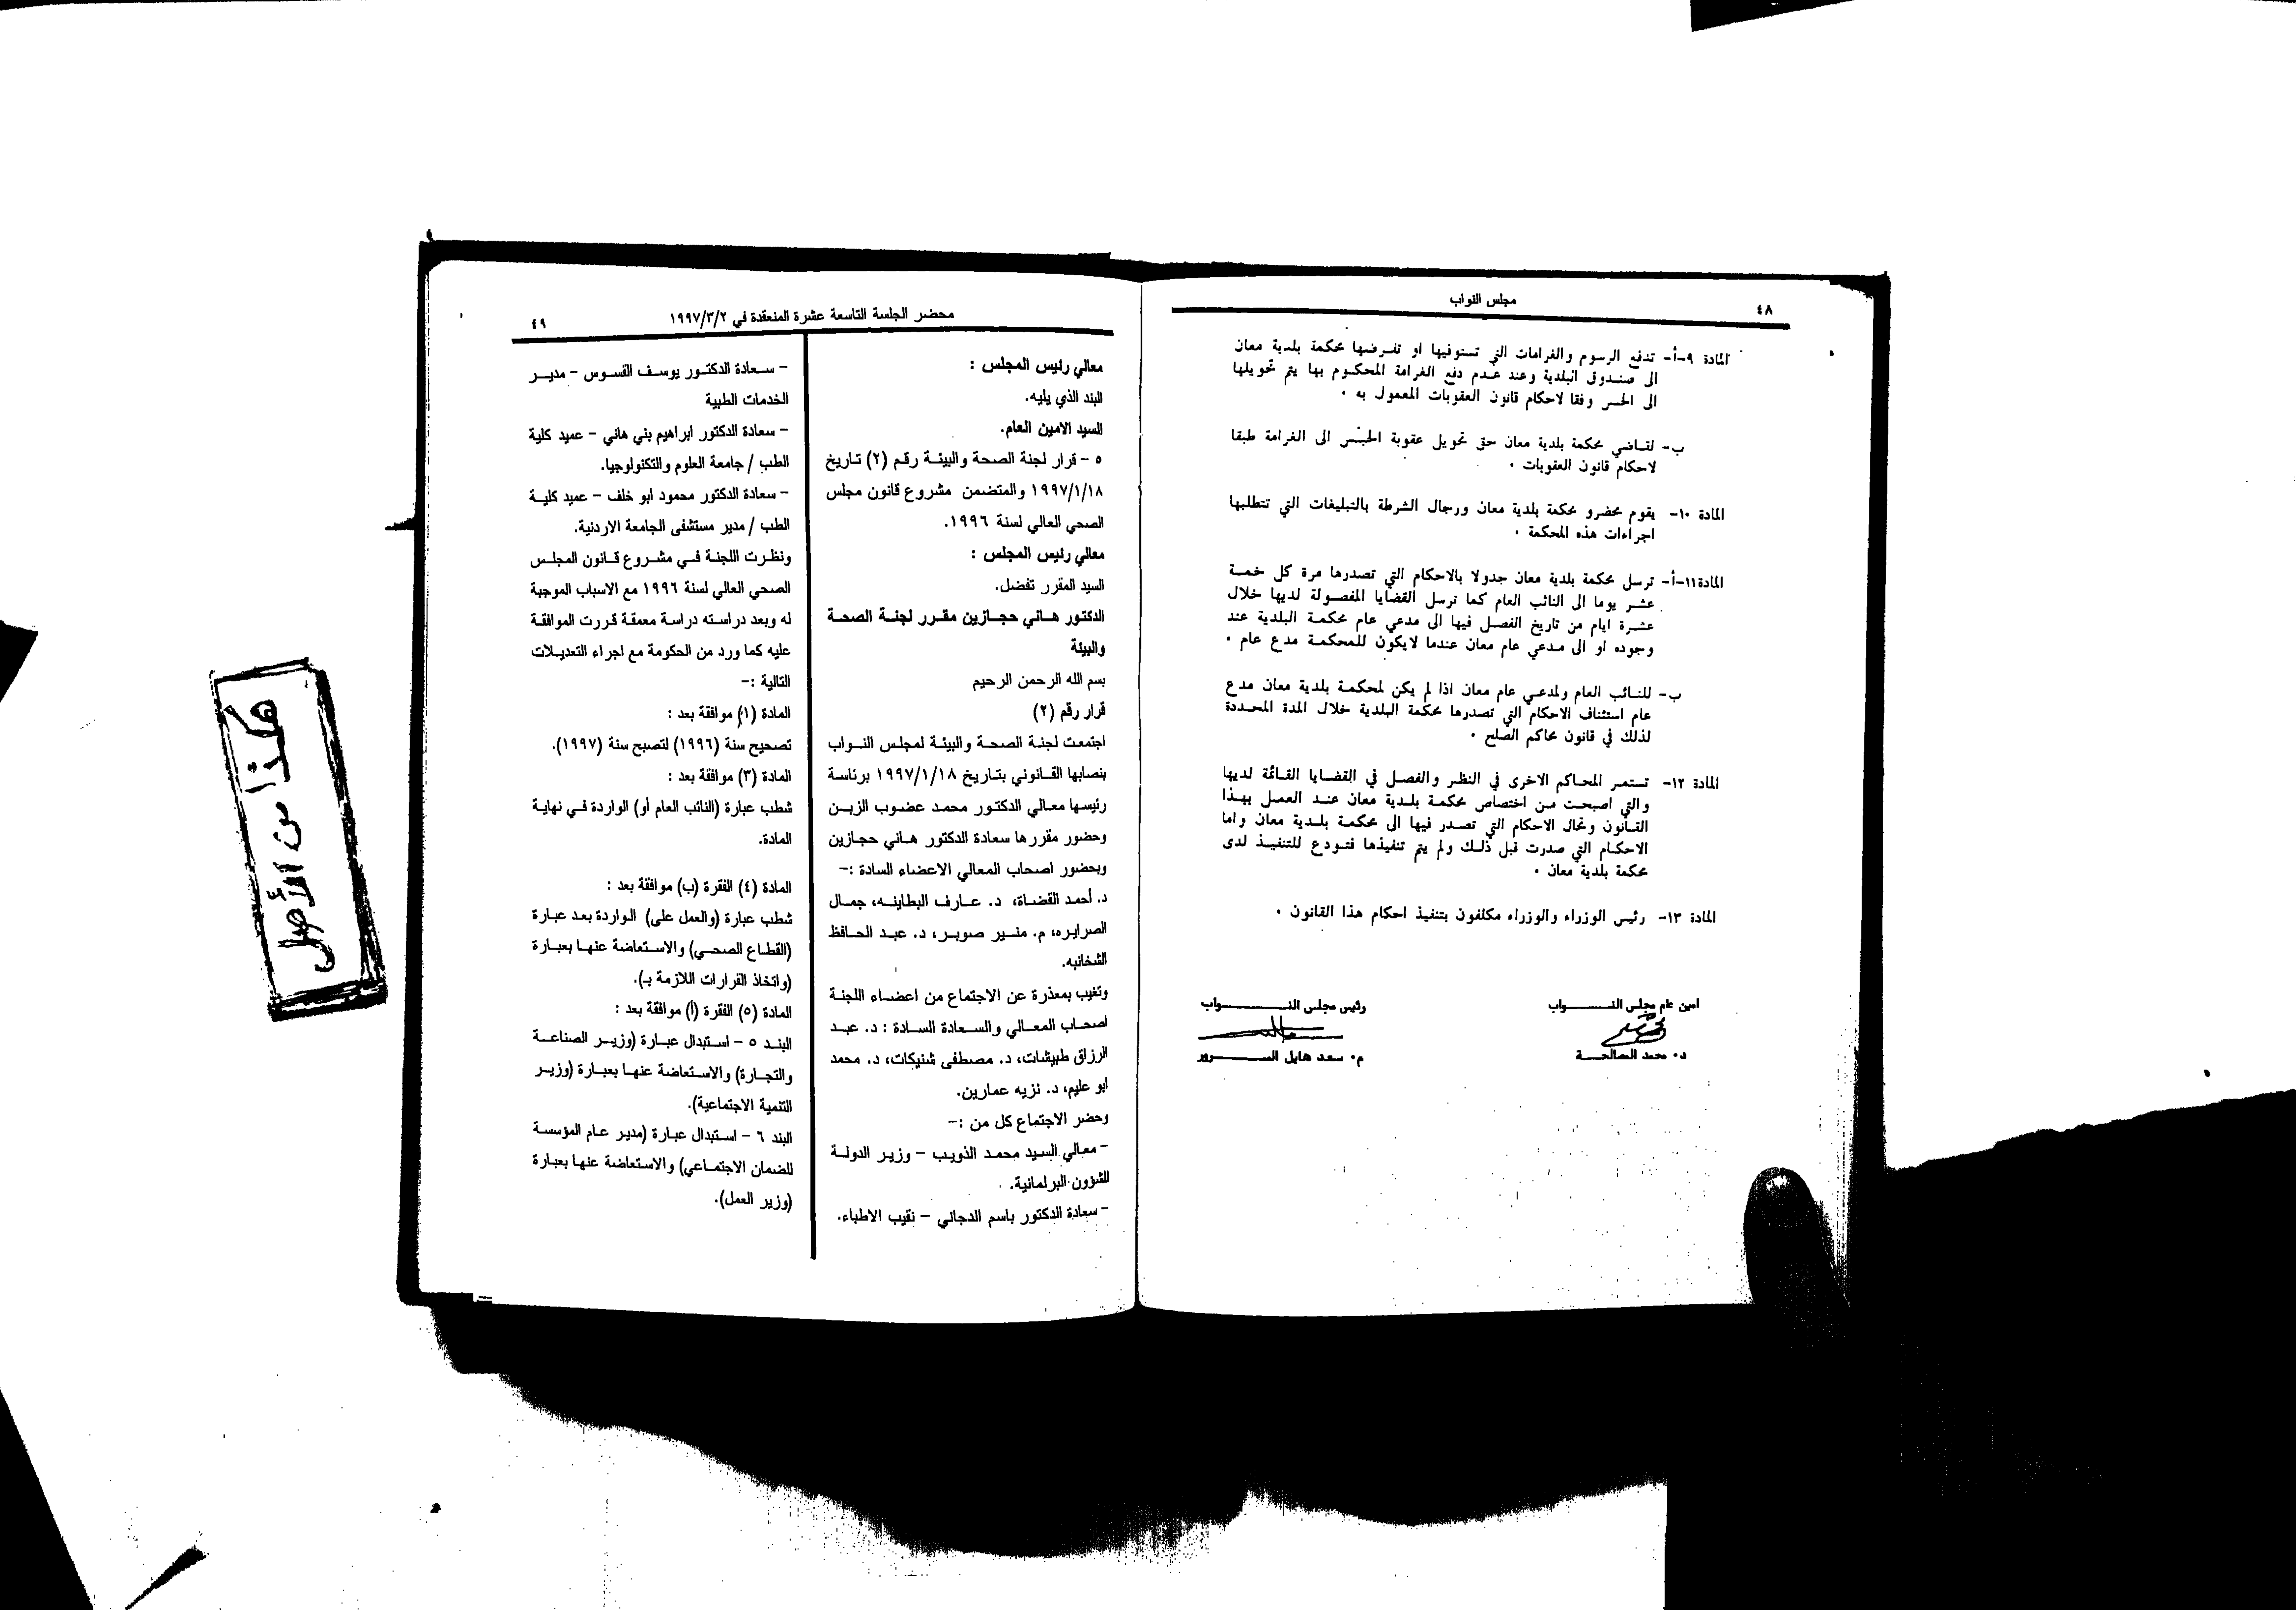 ٤٨
مجلس النواب
المادة ٩-أ- تدفع الرسوم والغرامات التي تستوفيها او تفرضها محكمة بلدية معان
الى صندوق البلدية وعند عدم دفع الغرامة المحكوم بها يتم تحويلها
الى الحبس وفقا لاحكام قانون العقوبات المعمول به .
ب- لقاضي محكمة بلدية معان حق تحويل عقوبة الحبس الى الغرامة طبقا
لاحكام قانون العقوبات .
المادة ١٠- يقوم محضرو محكمة بلدية معان ورجال الشرطة بالتبليغات التي تتطلبها
اجراءات هذه المحكمة .
المادة ١١-أ- ترسل محكمة بلدية معان جدولا بالاحكام التي تصدرها مرة كل خمسة
عشر يوما الى النائب العام كما ترسل القضايا المفصولة لديها خلال
عشرة ايام من تاريخ الفصل فيها الى مدعي عام محكمة البلدية عند
وجوده او الى مدعي عام معان عندما لايكون للمحكمة مدع عام .
ب- للنائب العام ولمدعي عام معان اذا لم يكن لمحكمة بلدية معان مدع
عام استئناف الاحكام التي تصدرها محكمة البلدية خلال المدة المحددة
لذلك في قانون محاكم الصلح .
المادة ١٢- تستمر المحاكم الاخرى في النظر والفصل في القضايا القائمة لديها
والتي اصبحت من اختصاص محكمة بلدية معان عند العمل بهذا
القانون وتحال الاحكام التي تصدر فيها الى محكمة بلدية معان واما
الاحكام التي صدرت قبل ذلك ولم يتم تنفيذها فتودع للتنفيذ لدى
محكمة بلدية معان .
المادة ١٣- رئيس الوزراء والوزراء مكلفون بتنفيذ احكام هذا القانون .
امين عام مجلس النواب
د. محمد المصالحة
رئيس مجلس النواب
م. سعد هايل السرور
محضر الجلسة التاسعة عشرة المنعقدة في ١٩٩٧/٣/٢
٤٩
معالي رئيس المجلس :
البند الذي يليه.
السيد الامين العام.
٥ - قرار لجنة الصحة والبيئة رقم (٢) تاريخ
١٩٩٧/١/١٨ والمتضمن مشروع قانون مجلس
الصحي العالي لسنة ١٩٩٦.
معالي رئيس المجلس :
السيد المقرر تفضل.
الدكتور هاني حجازين مقرر لجنة الصحة
والبيئة
بسم الله الرحمن الرحيم
قرار رقم (٢)
اجتمعت لجنة الصحة والبيئة لمجلس النواب
بنصابها القانوني بتاريخ ١٩٩٧/١/١٨ برئاسة
رئيسها معالي الدكتور محمد عضوب الزبن
وحضور مقررها سعادة الدكتور هاني حجازين
وبحضور اصحاب المعالي الاعضاء السادة :-
د. أحمد القضاة، د. عارف البطاينه، جمال
الصرايره، م. منير صوبر، د. عبد الحافظ
الشخانبه.
وتغيب بمعذرة عن الاجتماع من اعضاء اللجنة
اصحاب المعالي والسعادة السادة : د. عبد
الرزاق طبيشات، د. مصطفى شنيكات، د. محمد
ابو عليم، د. نزيه عمارين.
وحضر الاجتماع كل من :-
- معالي السيد محمد الذويب - وزير الدولة
للشؤون البرلمانية.
- سعادة الدكتور باسم الدجاني - نقيب الاطباء.
- سعادة الدكتور يوسف القسوس - مدير
الخدمات الطبية
- سعادة الدكتور ابراهيم بني هاني - عميد كلية
الطب / جامعة العلوم والتكنولوجيا.
- سعادة الدكتور محمود ابو خلف - عميد كلية
الطب / مدير مستشفى الجامعة الاردنية.
ونظرت اللجنة في مشروع قانون المجلس
الصحي العالي لسنة ١٩٩٦ مع الاسباب الموجبة
له وبعد دراسته دراسة معمقة قررت الموافقة
عليه كما ورد من الحكومة مع اجراء التعديلات
التالية :-
المادة (١) موافقة بعد :
تصحيح سنة (١٩٩٦) لتصبح سنة (١٩٩٧).
المادة (٣) موافقة بعد :
شطب عبارة (النائب العام أو) الواردة في نهاية
المادة.
المادة (٤) الفقرة (ب) موافقة بعد :
شطب عبارة (والعمل على) الواردة بعد عبارة
(القطاع الصحي) والاستعاضة عنها بعبارة
(واتخاذ القرارات اللازمة بـ).
المادة (٥) الفقرة (أ) موافقة بعد :
البند ٥ - استبدال عبارة (وزير الصناعة
والتجارة) والاستعاضة عنها بعبارة (وزير
التنمية الاجتماعية).
البند ٦ - استبدال عبارة (مدير عام المؤسسة
للضمان الاجتماعي) والاستعاضة عنها بعبارة
(وزير العمل).
هكذا من الأصل